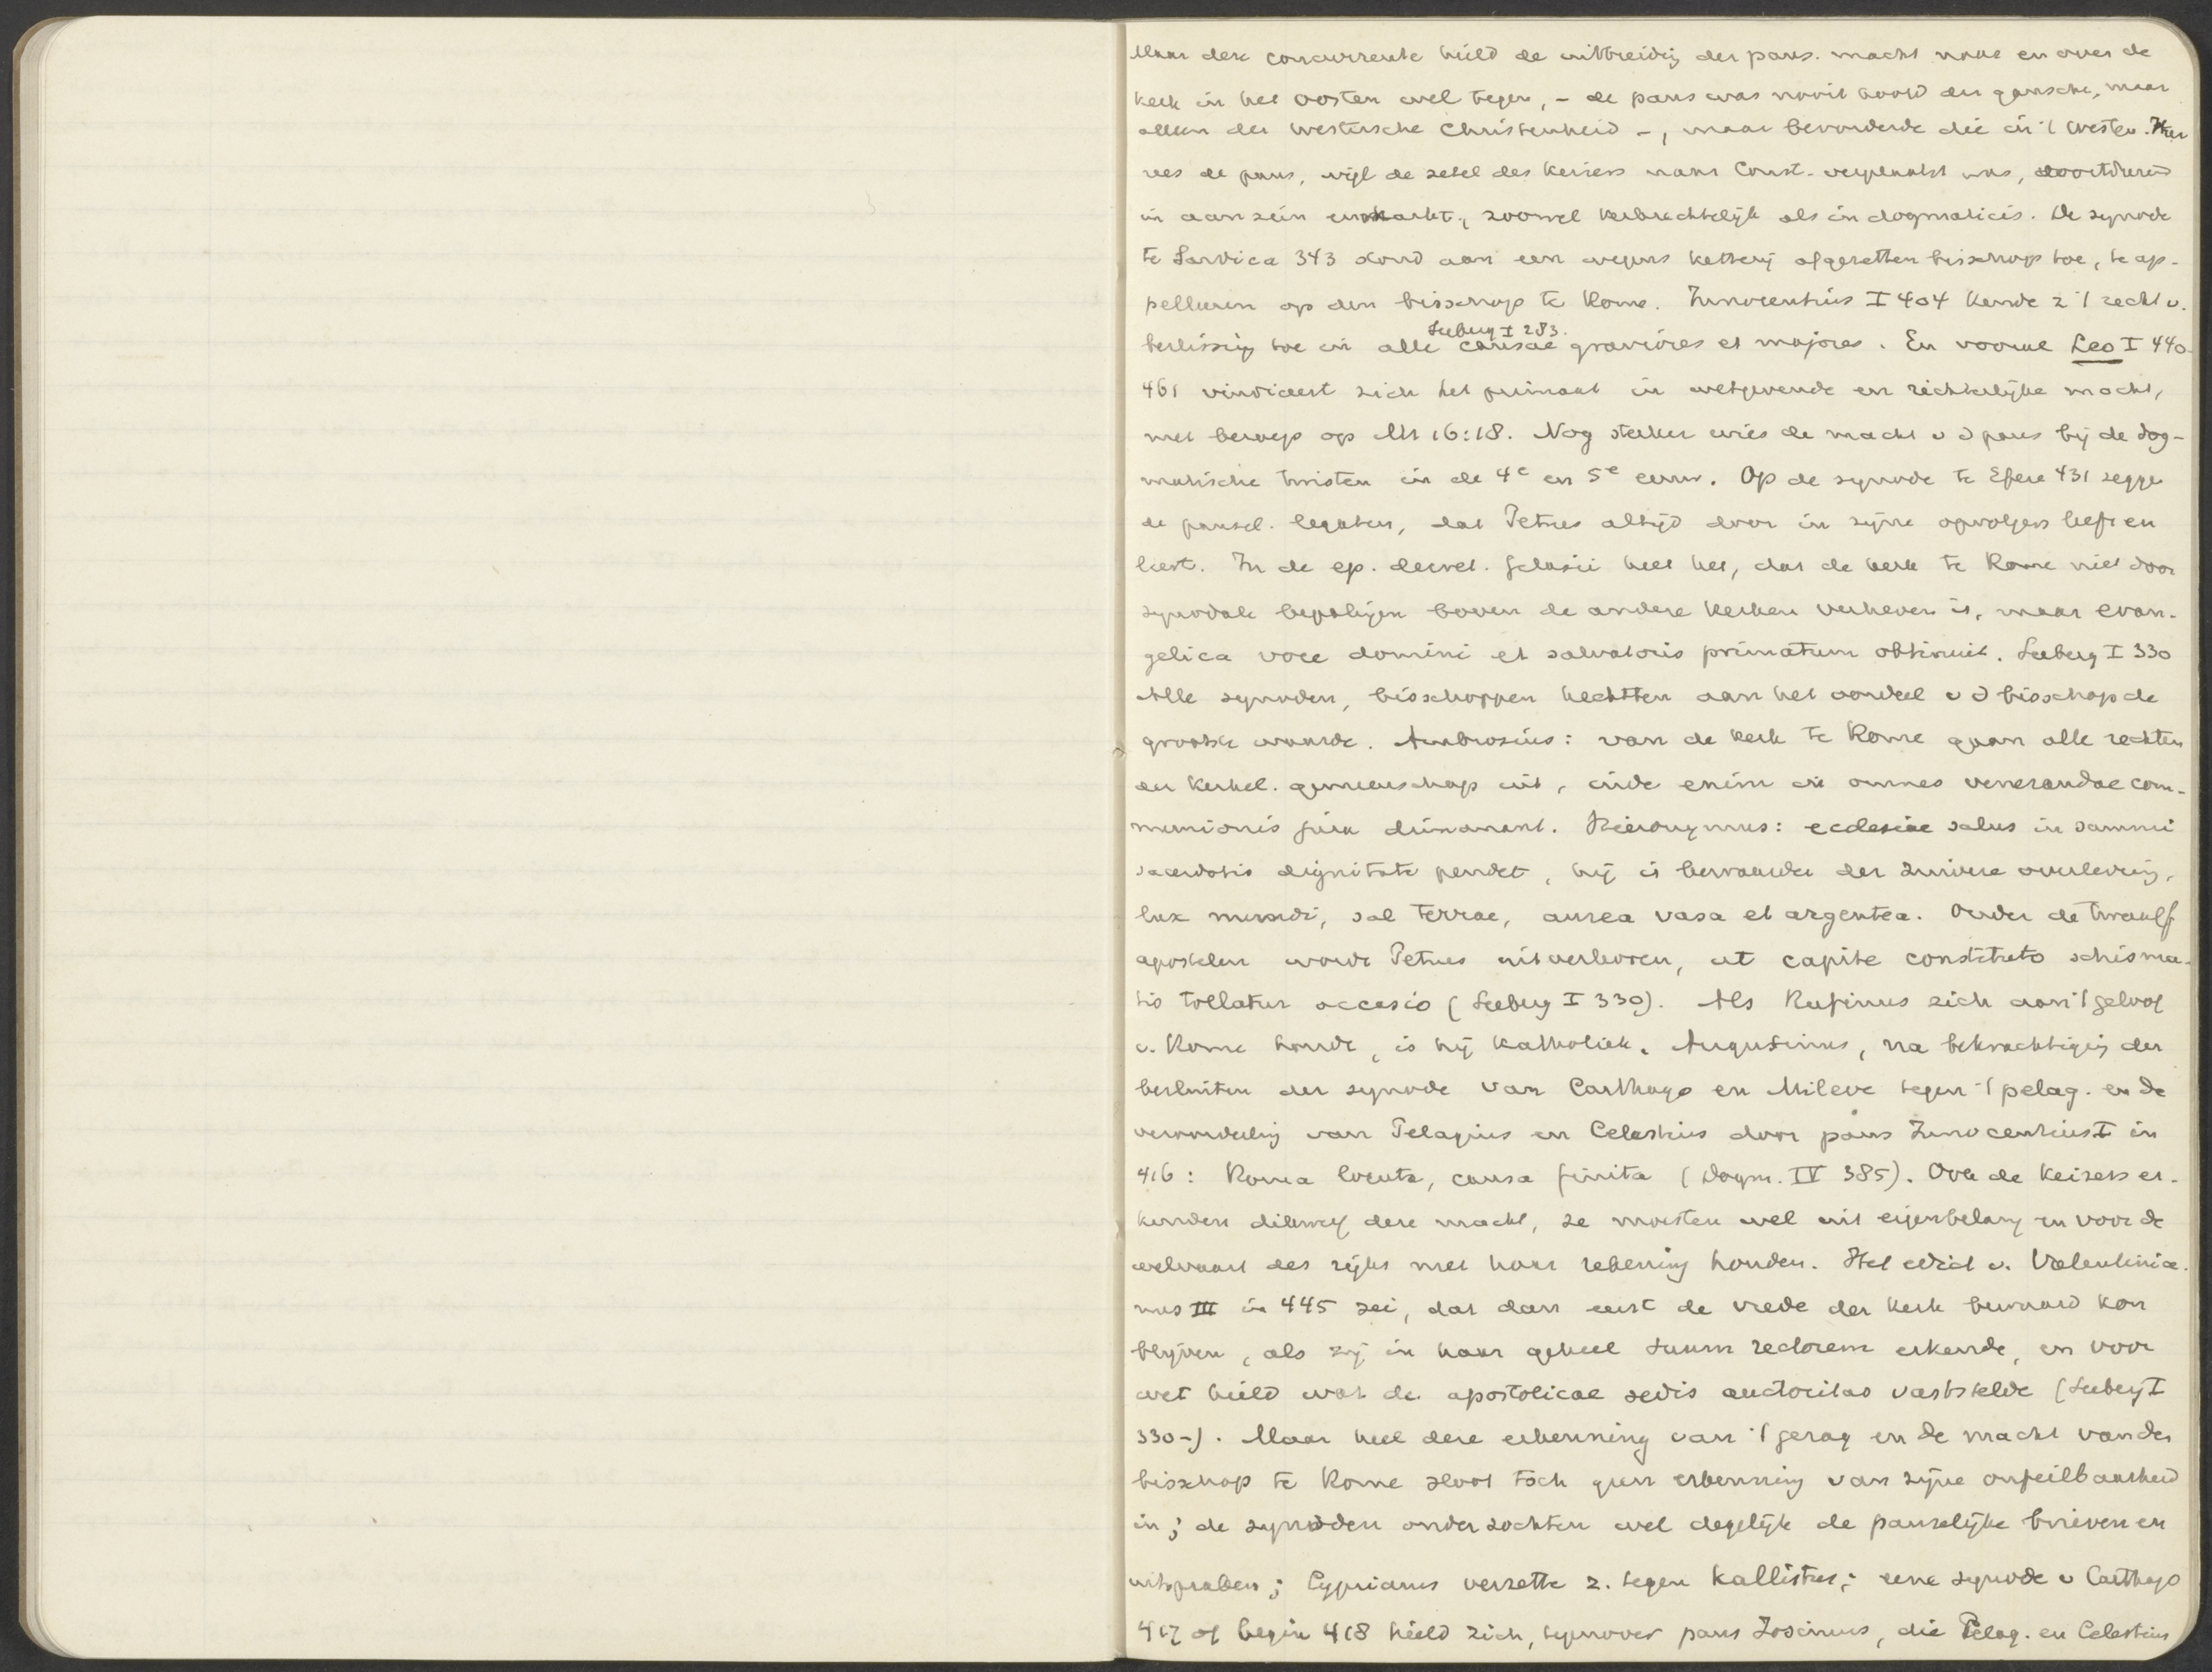 Maar deze concurrentie hield de uitbreidig der paus. macht naar en over de
kerk in het Oosten wel tegen, - de paus was nooit hoofd der gansche, maar
alleen der Westersche Christenheid -, maar bevorderde die in 't Westen. Hier
rees de paus, wijl de zetel des keizers naar Const. verplaatst was, voortdurend
in aanzien en macht, zoowel kerkrechtelijk als in dogmaticis. De synode
te Sardica 343 stond aan een wegens ketterij afgezetten bisschop toe, te ap-
pelleeren op den bisschop te Rome. Innocentius I 404 kende z 't recht v.
Seeberg I 283.
beslissing toe in alle causae graviores et majores. En vooral Leo I 440-
461 vindiceert zich het primaat in wetgevende en richterlijke macht,
met beroep op Mt 16:18. Nog sterker wies de macht v d paus bij de dog-
matische twisten in de 4e en 5e eeuw. Op de synode te Efeze 431 zegge
de pausel. legaten, dat Petrus altijd door in zijne opvolgers leeft en
leert. In de ep. decret. Gelasii heet het, dat de kerk te Rome niet door
synodale bepalijen boven de andere kerken verheven is, maar evan-
gelica voce domini et salvatoris primatum obtinuit. Seeberg I 330
Alle synoden, bisschoppen hechtten aan het oordeel v d bisschop de
grootste waarde. Ambrosius: van de kerk te Rome gaan alle rechten
der kerkel. gemeenschap uit, inde enim in omnes venerandae com-
munionis jura dimanant. Hieronymus: ecclesiae salus in summi
sacerdotis dignitate pendet, hij is bewaarder der zuivere overlevering,
lux mundi, sal terrae, aurea vasa et argentea. Onder de twaalf
apostelen wordt Petrus uitverkoren, ut capite constituto schisma-
tis tollatur occasio (Seeberg I 330). Als Rufinus zich aan 't geloof
v. Rome houdt, is hij Katholiek. Augustinus, na bekrachtigig der
besluiten der synode van Carthago en Mileve tegen 't pelag. en de
veroordeelig van Pelagius en Celestius door paus Innocentius I in
416: Roma locuta, causa finita (Dogm. IV 385). Ook de keizers er-
kenden dikwerf deze macht, ze moesten wel uit eigenbelang en voor de
welvaart des rijks met haar rekening houden. Het edict v. Valentinia-
nus III in 445 zei, dat dan eerst de vrede der kerk bewaard kon
blijven, als zij in haar geheel suum rectorem erkende, en voor
wet hield wat de apostolicae sedis auctoritas vaststelde (Seeberg I
330-). Maar heel deze erkenning van 't gezag en de macht van den
bisschop te Rome sloot toch geen erkenning van zijne onfeilbaarheid
in; de synoden onderzochten wel degelijk de pauselijke brieven en
uitspraken; Cyprianus verzette z. tegen Kallistus; eene synode v Carthago
417 of begin 418 hield zich, tegenover paus Zosimus, die Pelag. en Celestius